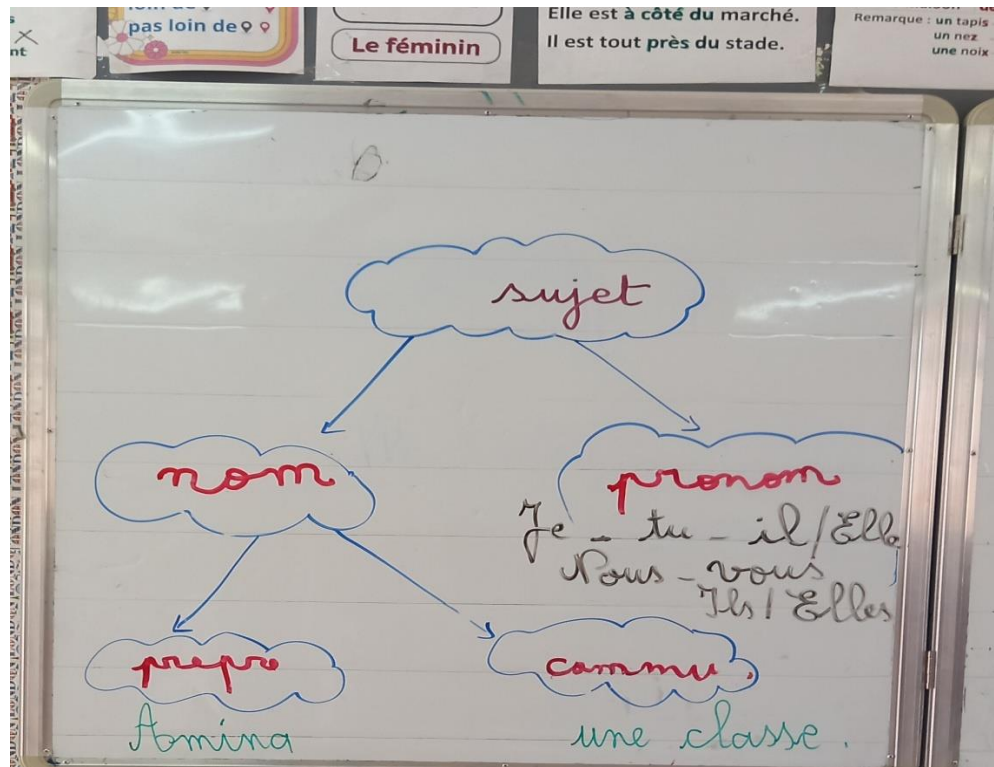 pas loin de
Le féminin
Elle est à côté du marché.
Il est tout près du stade.
Remarque : un tapis
un nez
une noix
sujet
nom
pronom
Je - tu - il/Elle
Nous - vous
Ils/Elles
propre
commu.
Amina
une classe.